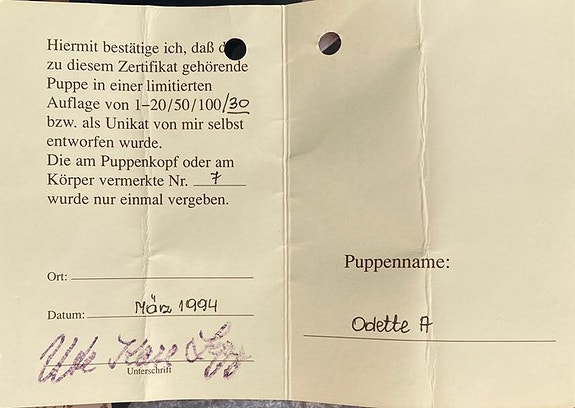 Hiermit bestätige ich, daß
zu diesem Zertifikat gehörende
Puppe in einer limitierten
Auflage von 1–20/50/100/30
bzw. als Unikat von mir selbst
entworfen wurde.
Die am Puppenkopf oder am
Körper vermerkte Nr. 7
wurde nur einmal vergeben.
Ort:
Datum: März 1994
Unterschrift
Puppenname:
Odette A